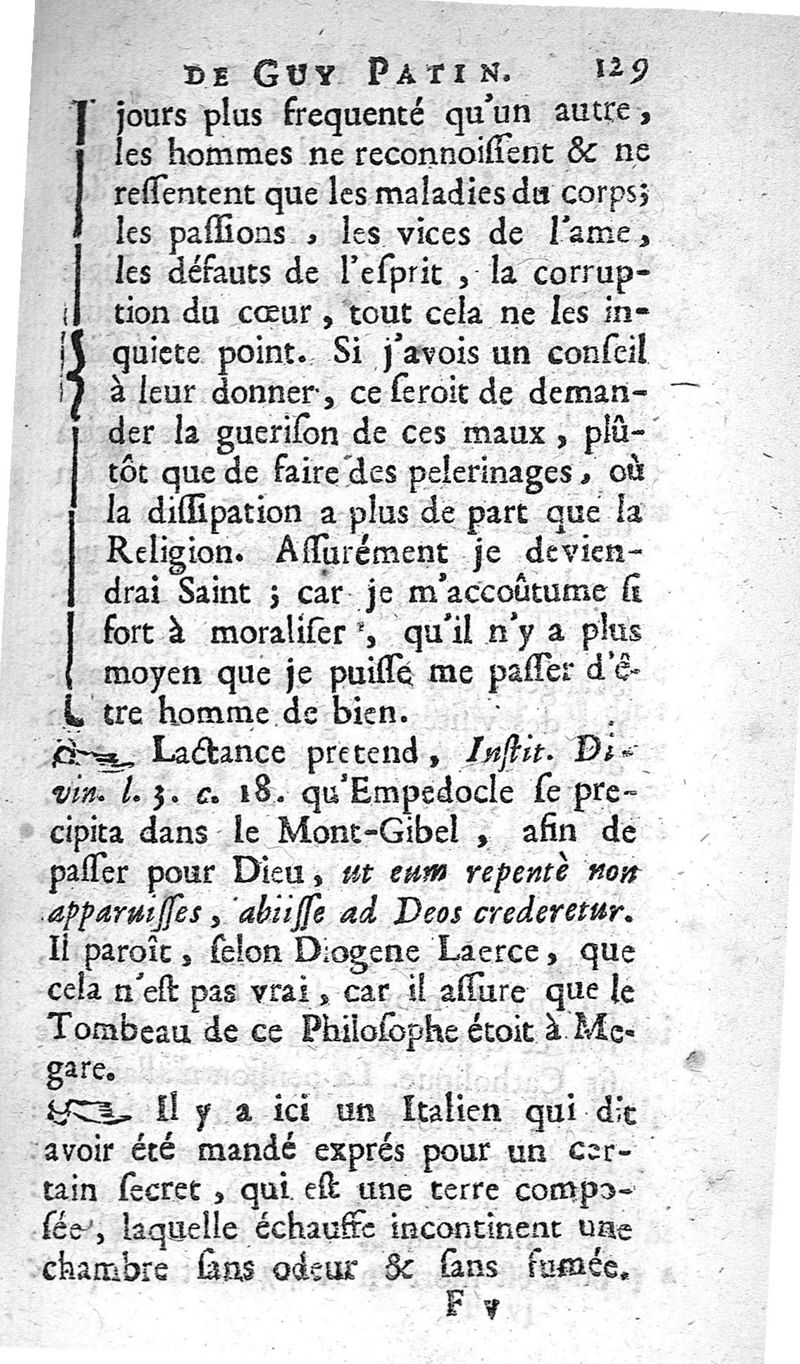 DE GUY PATIN. 129
jours plus frequenté qu'un autre,
les hommes ne reconnoiſſent & ne
reſſentent que les maladies du corps;
les paſſions, les vices de l'ame,
les défauts de l'eſprit, la corrup-
tion du cœur, tout cela ne les in-
quiete point. Si j'avois un conſeil
à leur donner, ce ſeroit de deman-
der la gueriſon de ces maux, plû-
tôt que de faire des pelerinages, où
la diſſipation a plus de part que la
Religion. Aſſurément je devien-
drai Saint; car je m'accoûtume ſi
fort à moraliſer, qu'il n'y a plus
moyen que je puiſſe me paſſer d'ê-
tre homme de bien.
☞ Lactance pretend, Inſtit. Di-
vin. l. 3. c. 18. qu'Empedocle ſe pre-
cipita dans le Mont-Gibel, afin de
paſſer pour Dieu, ut eum repentè non
apparuiſſes, abiiſſe ad Deos crederetur.
Il paroît, ſelon Diogene Laerce, que
cela n'eſt pas vrai, car il aſſure que le
Tombeau de ce Philoſophe étoit à Me-
gare.
☞ Il y a ici un Italien qui dit
avoir été mandé exprés pour un cer-
tain ſecret, qui eſt une terre compo-
ſée, laquelle échauffe incontinent une
chambre ſans odeur & ſans fumée.
F v